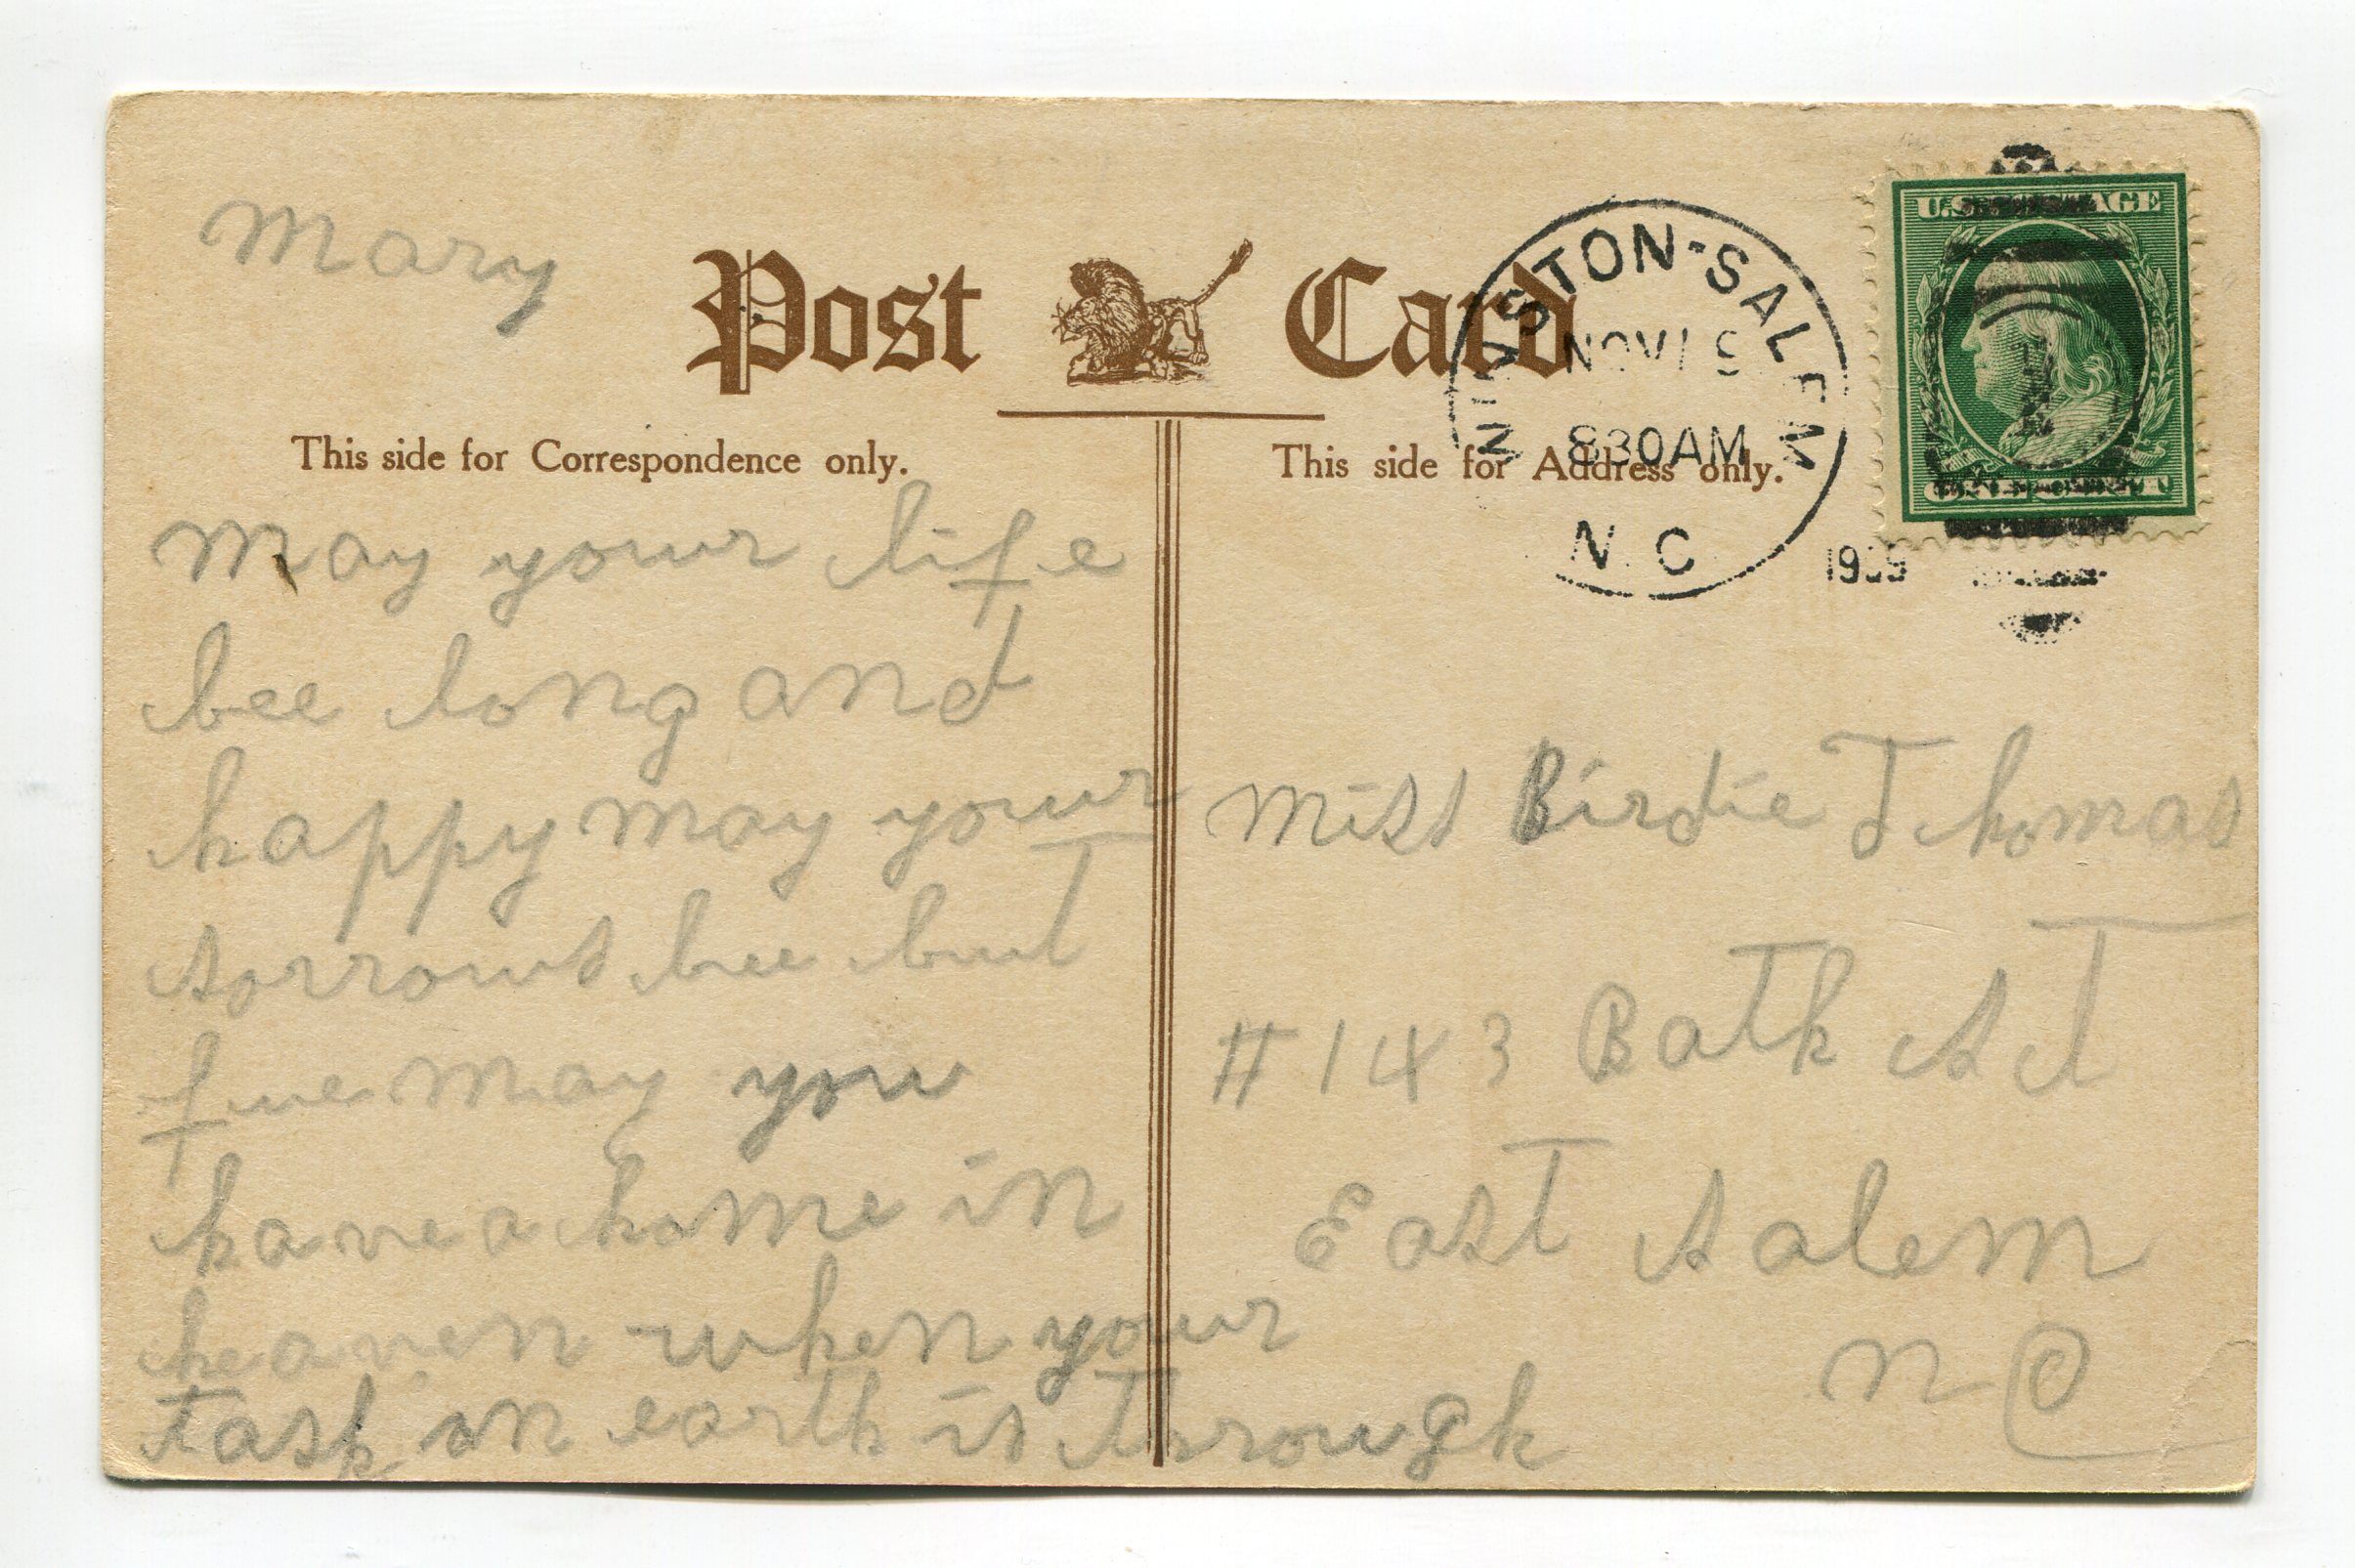 Mary
Post Card
WINSTON-SALEM
NOV
830AM
N. C.
U.S. POSTAGE
This side for Correspondence only.
This side for Address only.
May your life
bee long and
happy may your
sorrows bee but
fue may you
have a home in
heaven when your
task on earth is through
Miss Birdie Thomas
#143 Bath St
East Salem
N C